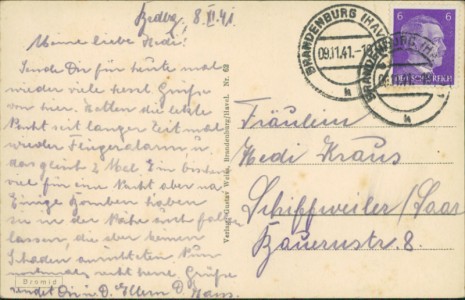 Brdbg, 8.XI.41.
Meine liebe Hedi!
Sende Dir für heute mal
wieder viele herzl. Grüße
von hier. Hatten die letzte
Nacht seit langer Zeit mal
wieder Fliegeralarm u.
das gleich 2 Mal. Ein bischen
viel für eine Nacht aber na
Einige Bomben haben
sie in der Nähe auch fallen
lassen, die aber keinen
Schaden anrichteten. Nun
nochmals recht herzl. Grüße
sendet Dir u. D. Eltern D. Hans.
Verlag: Gustav Weise, Brandenburg/Havel. Nr. 62
BRANDENBURG (HAVEL)
09.11.41.
h
BRANDENBURG (HAVEL)
h
6 6
DEUTSCHES REICH
Fräulein
Hedi Kraus
Schiffweiler/Saar
Bauernstr. 8.